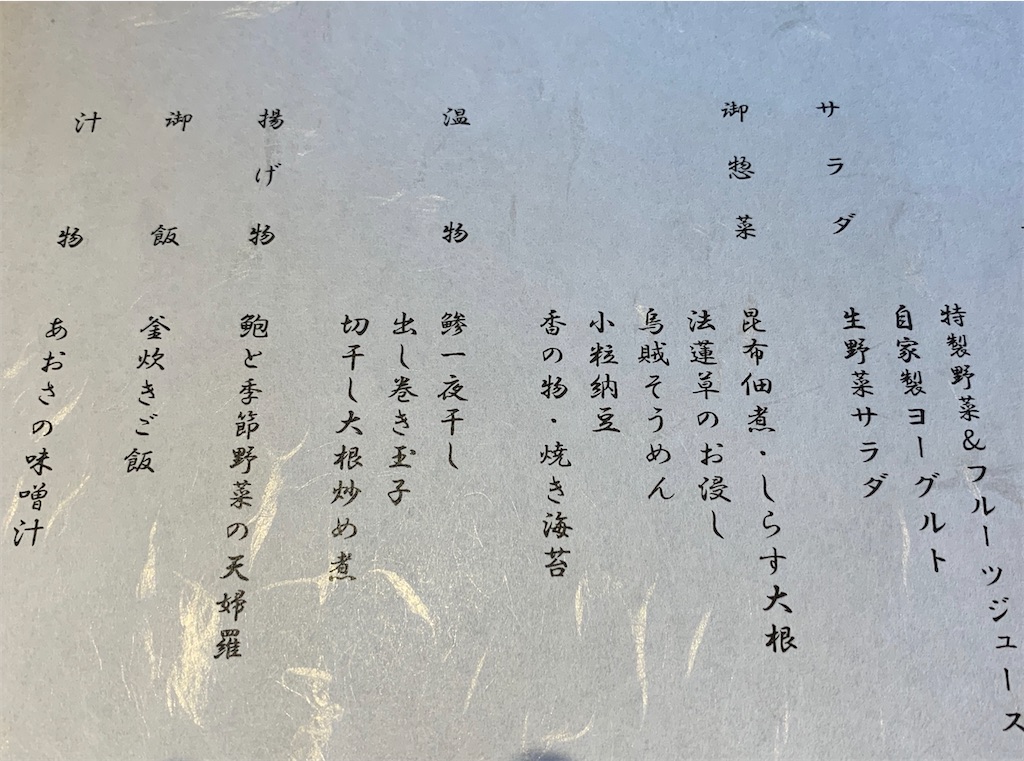 特製野菜&フルーツジュース
自家製ヨーグルト
サラダ 生野菜サラダ
御惣菜 昆布佃煮・しらす大根
法蓮草のお浸し
烏賊そうめん
小粒納豆
香の物・焼き海苔
温物 鯵一夜干し
出し巻き玉子
切干し大根炒め煮
揚げ物 鮑と季節野菜の天婦羅
御飯 釜炊きご飯
汁物 あおさの味噌汁